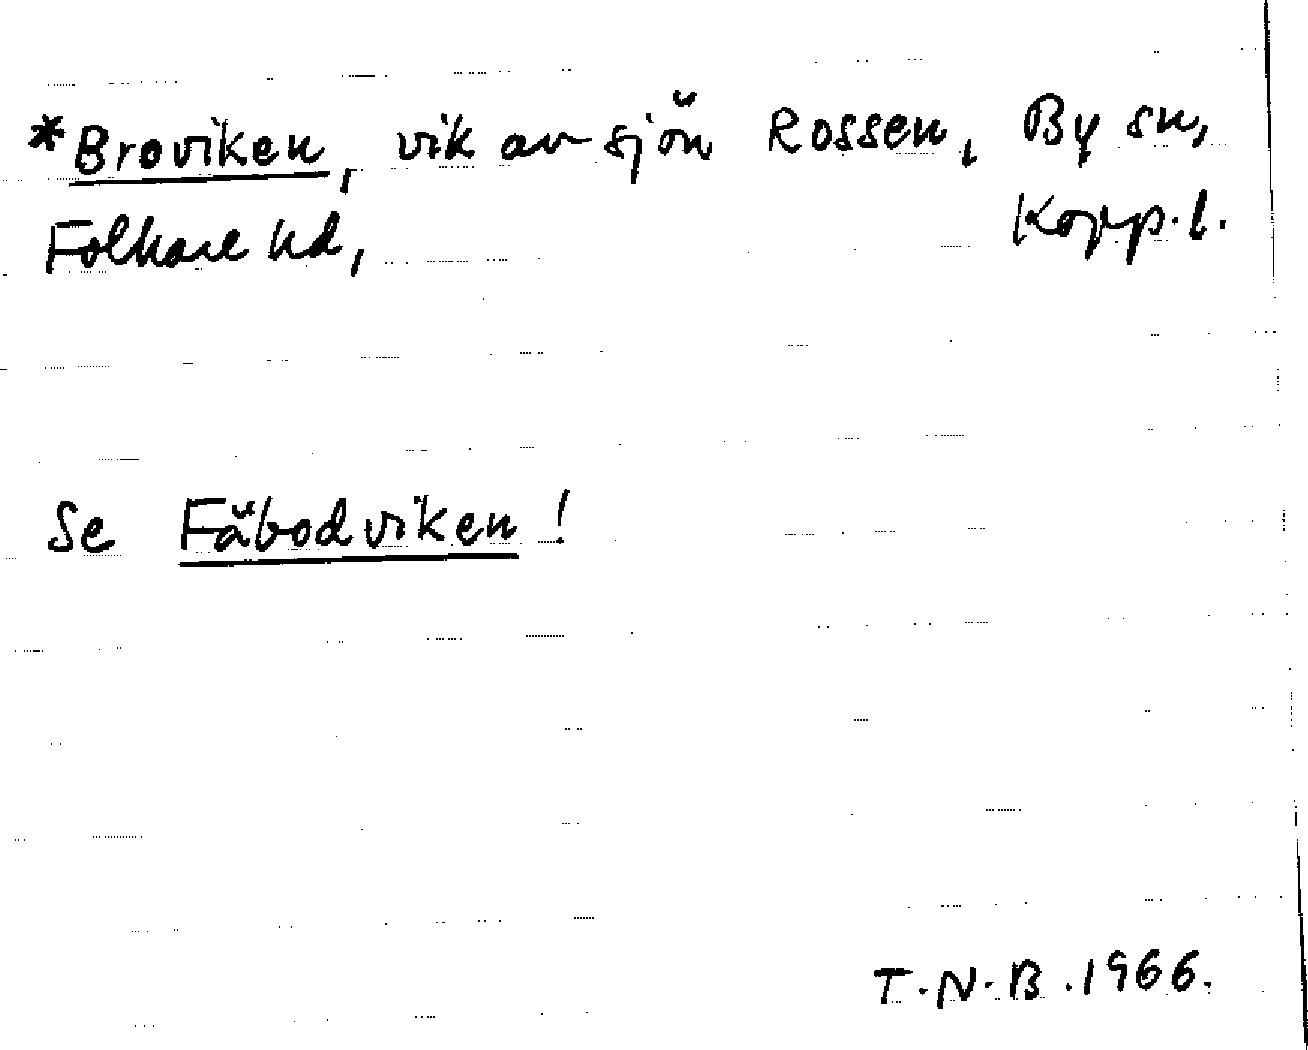 *Broviken, vik av sjön Rossen, By sn,
Folkare hd, Kopp. l.
Se Fäbodviken!
T.N.B. 1966.